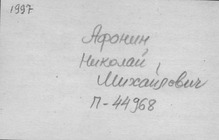 1997
Афонин
Николай
Михайлович
П-44968